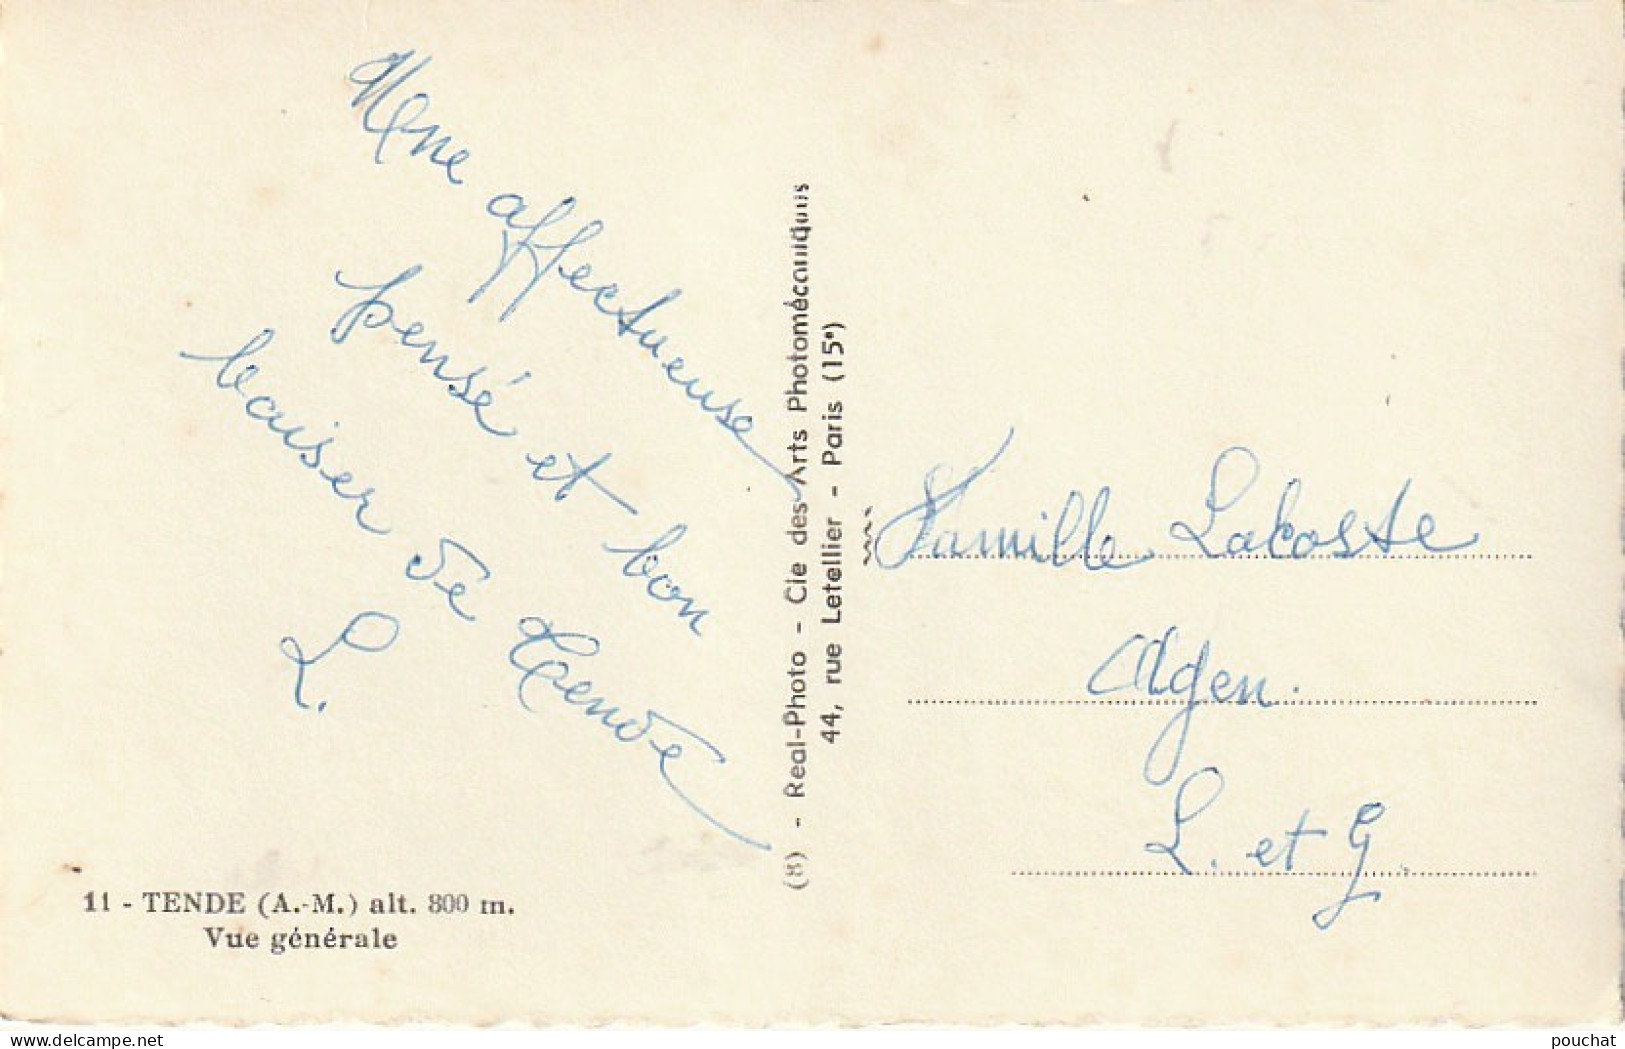 Une affectueuse
pensé et bon
baiser de Tende
L.
11 - TENDE (A.-M.) alt. 800 m.
Vue générale
(8) - Real-Photo - Cie des Arts Photomécaniques
44, rue Letellier - Paris (15e)
Famille Lacoste
Agen.
L. et G.
www.delcampe.net
pouchat